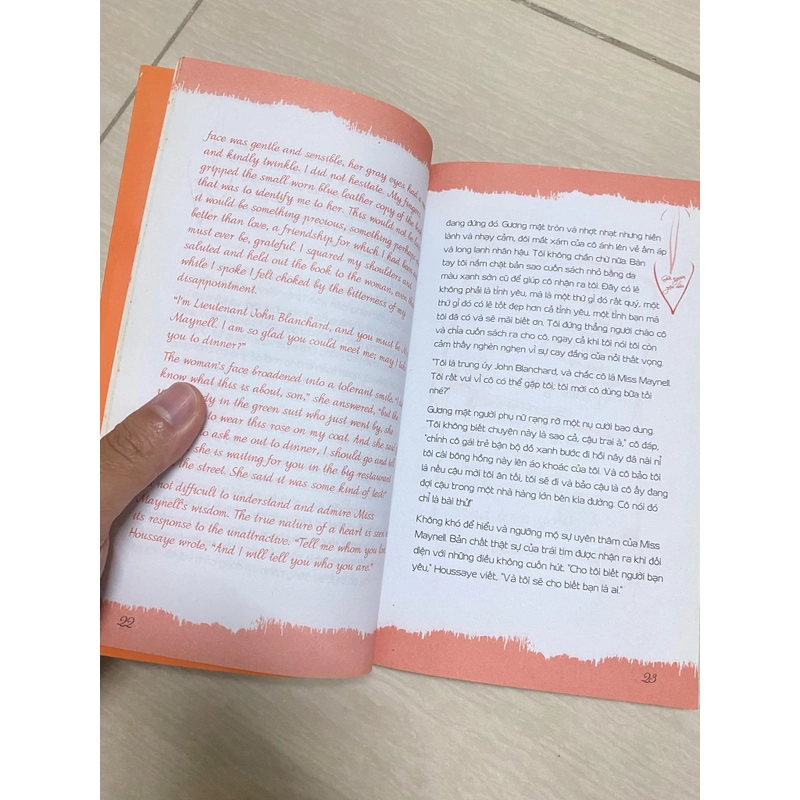 face was gentle and sensible, her gray eyes had a
and kindly twinkle. I did not hesitate. My fingers
gripped the small worn blue leather copy of the
that was to identify me to her. This would not be
it would be something precious, something perhaps
better than love, a friendship for which I had been and
must ever be, grateful. I squared my shoulders and
saluted and held out the book to the woman, even
while I spoke I felt choked by the bitterness of my
disappointment.
"I'm Lieutenant John Blanchard, and you must be
Maynell. I am so glad you could meet me; may I take
you to dinner?"
The woman's face broadened into a tolerant smile. "I
know what this is about, son," she answered, "but the
in the green suit who just went by, she
to wear this rose on my coat. And she said
to ask me out to dinner, I should go and tell
she is waiting for you in the big restaurant
the street. She said it was some kind of test!"
not difficult to understand and admire Miss
Maynell's wisdom. The true nature of a heart is seen
its response to the unattractive. "Tell me whom you
Houssaye wrote, "And I will tell you who you are."
22
đang đứng đó. Gương mặt tròn và nhợt nhạt nhưng hiền
lành và nhạy cảm, đôi mắt xám của cô ánh lên vẻ ấm áp
và long lanh nhân hậu. Tôi không chần chừ nữa. Bàn
tay tôi nắm chặt bản sao cuốn sách nhỏ bằng da
màu xanh sờn cũ để giúp cô nhận ra tôi. Đây có lẽ
không phải là tình yêu, mà là một thứ gì đó rất quý, một
thứ gì đó có lẽ tốt đẹp hơn cả tình yêu, một tình bạn mà
tôi đã có và sẽ mãi biết ơn. Tôi đứng thẳng người chào cô
và chìa cuốn sách ra cho cô, ngay cả khi tôi nói tôi còn
cảm thấy nghèn nghẹn vì sự cay đắng của nỗi thất vọng.
"Tôi là trung úy John Blanchard, và chắc cô là Miss Maynell.
Tôi rất vui vì cô có thể gặp tôi; tôi mời cô dùng bữa tối
nhé?"
Gương mặt người phụ nữ rạng rỡ một nụ cười bao dung.
"Tôi không biết chuyện này là sao cả, cậu trai à," cô đáp,
"chính cô gái trẻ bận bộ đồ xanh bước đi hồi nãy đã nài nỉ
tôi cài bông hồng này lên áo khoác của tôi. Và cô bảo tôi
là nếu cậu mời tôi ăn tối, tôi sẽ đi và bảo cậu là cô ấy đang
đợi cậu trong một nhà hàng lớn bên kia đường. Cô nói đó
chỉ là bài thử!"
Không khó để hiểu và ngưỡng mộ sự uyên thâm của Miss
Maynell. Bản chất thật sự của trái tim được nhận ra khi đối
diện với những điều không cuốn hút. "Cho tôi biết người bạn
yêu," Houssaye viết. "Và tôi sẽ cho biết bạn là ai."
23